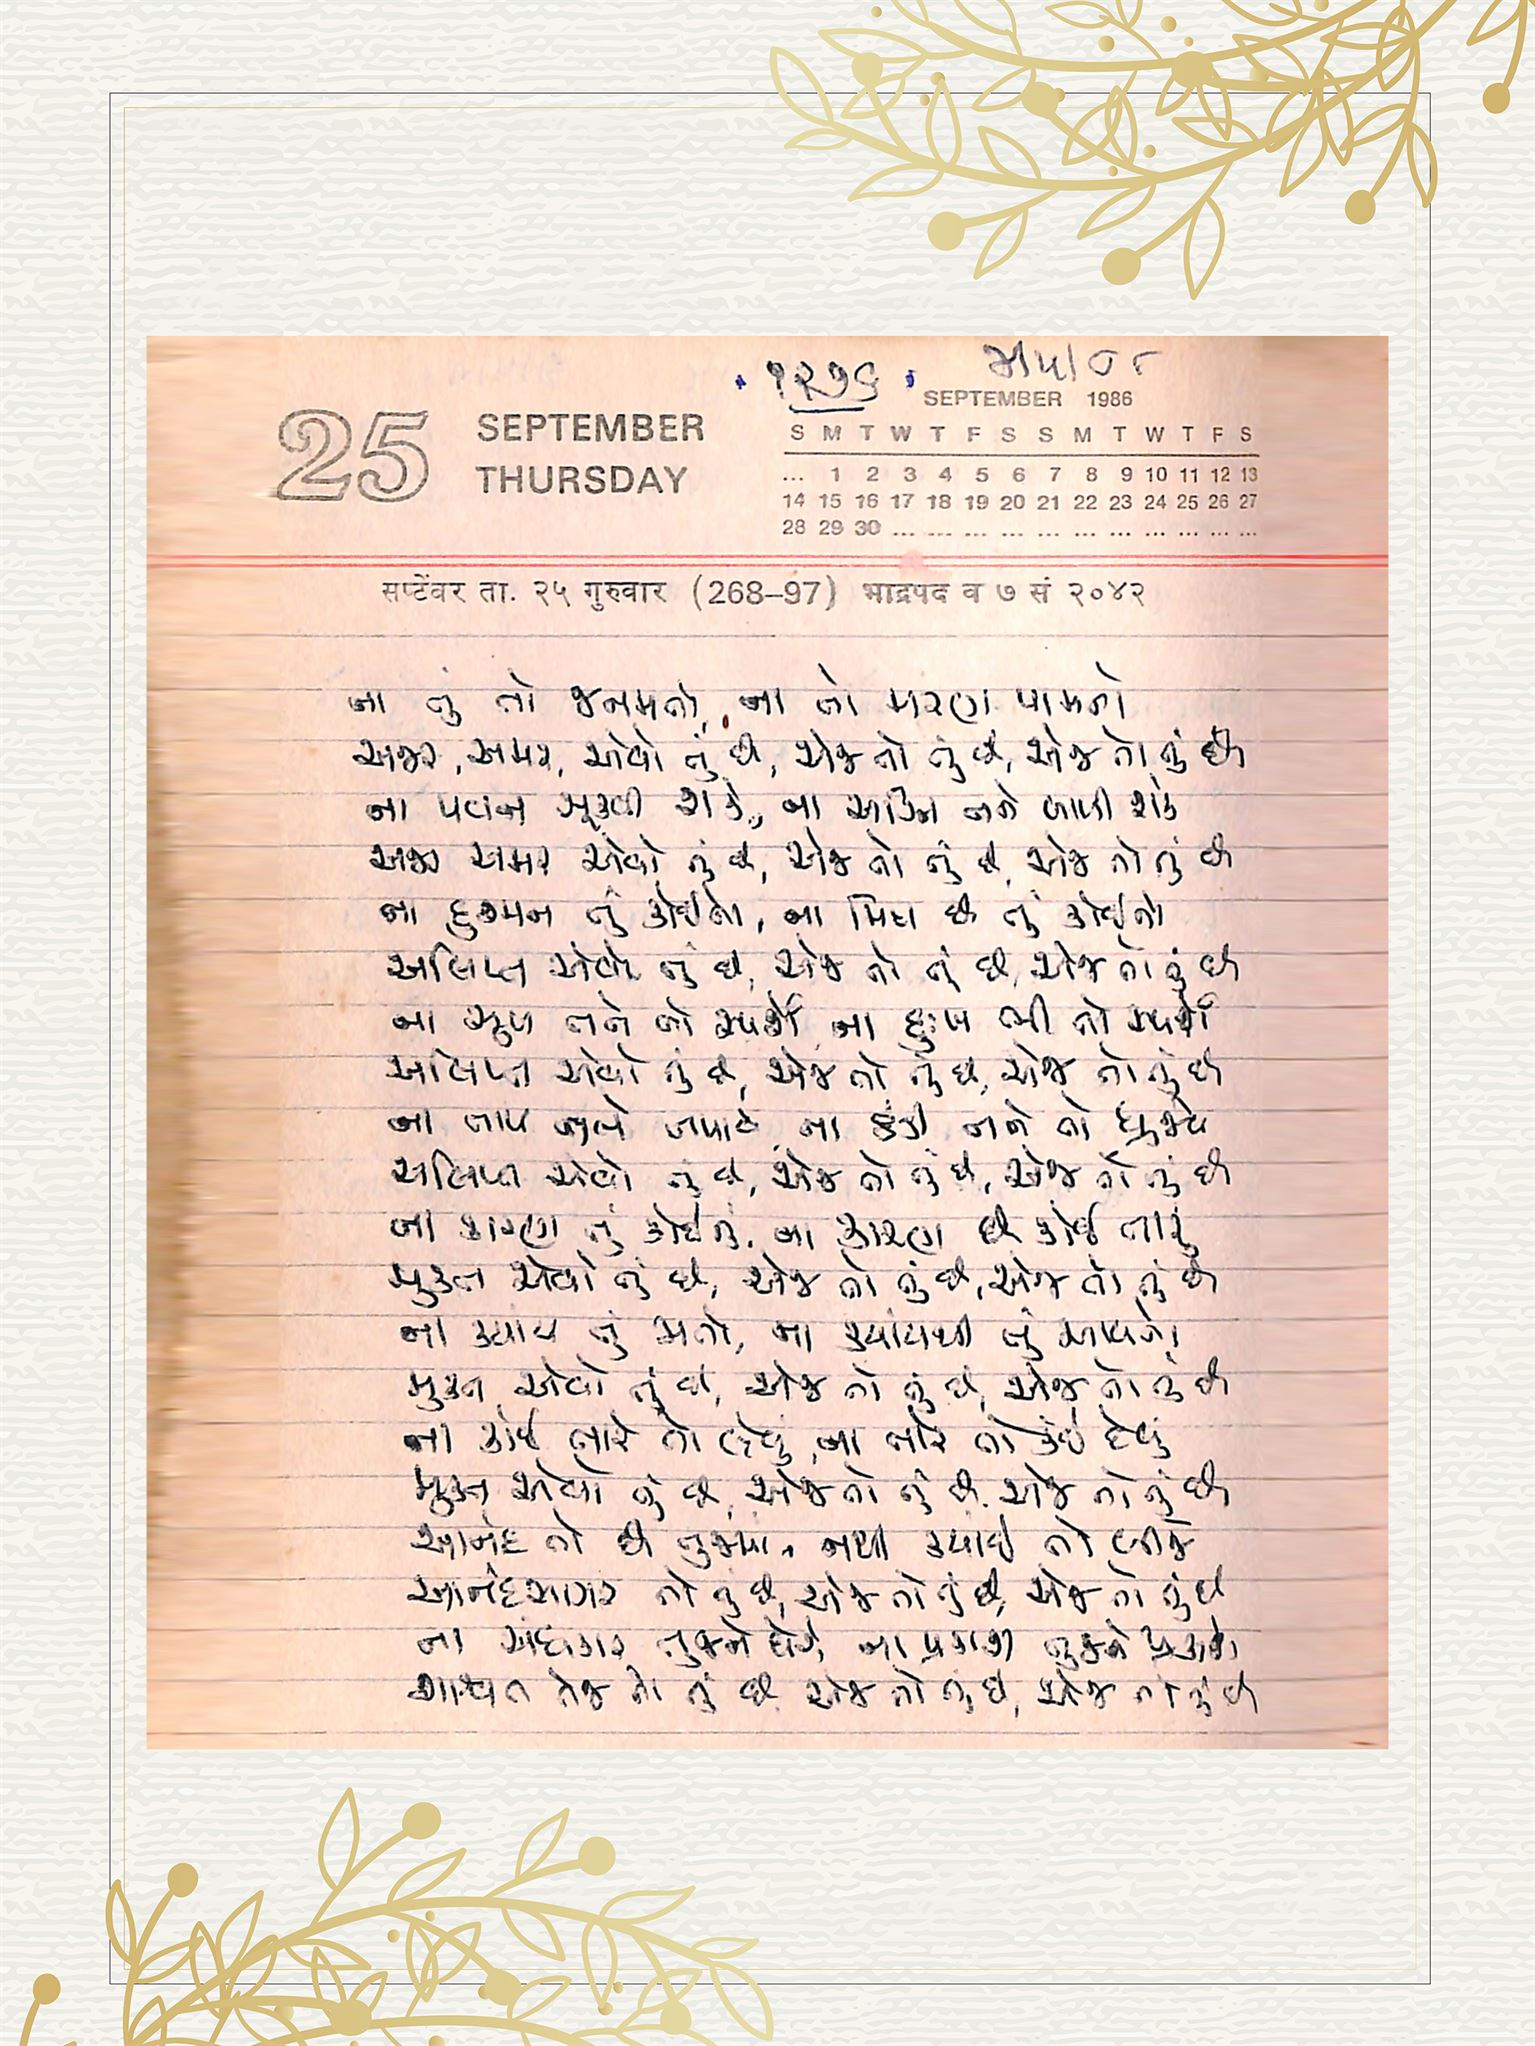 ૧૨૭૬
25
SEPTEMBER
THURSDAY
SEPTEMBER 1986
S M T W T F S S M T W T F S
... 1 2 3 4 5 6 7 8 9 10 11 12 13
14 15 16 17 18 19 20 21 22 23 24 25 26 27
28 29 30 ... ... ... ... ... ... ... ... ... ... ...
सप्टेंबर ता. २५ गुरुवार (268–97) भाद्रपद व ७ सं २०४२
ના તું તો જનમતો, ના તો મરણ પામતો
અજર, અમર, એવો તું છે, એજ તો તું છે, એજ તો તું છે
ના પવન સૂકવી શકે, ના અગ્નિ તને બાળી શકે
અજર અમર એવો તું છે, એજ તો તું છે, એજ તો તું છે
ના દુશ્મન તું કોઈનો, ના મિત્ર છે તું કોઈનો
અલિપ્ત એવો તું છે, એજ તો તું છે, એજ તો તું છે
ના સુખ તને તો સ્પર્શે, ના દુઃખ ભી તો સ્પર્શે
અલિપ્ત એવો તું છે, એજ તો તું છે, એજ તો તું છે
ના તાપ તુજને તપાવે, ના ઠંડી તને તો ધ્રુજાવે
અલિપ્ત એવો તું છે, એજ તો તું છે, એજ તો તું છે
ના કારણ તું કોઈનું, ના કારણ છે કોઈ તારું
મુક્ત એવો તું છે, એજ તો તું છે, એજ તો તું છે
ના ક્યાંય તું જાતો, ના ક્યાંયથી તું આવતો
મુક્ત એવો તું છે, એજ તો તું છે, એજ તો તું છે
ના કોઈ તારે તો લેવું, ના તારે તો કંઈ દેવું
મુક્ત એવો તું છે, એજ તો તું છે, એજ તો તું છે
આનંદ તો છે તુજમાં, નથી ક્યાંઈ તો બીજે
આનંદસાગર તો તું છે, એજ તો તું છે, એજ તો તું છે
ના અંધકાર તુજને ઘેરે, ના પ્રકાશ તુજને પ્રકાશે
શાશ્વત તેજ તો તું છે, એજ તો તું છે, એજ તો તું છે